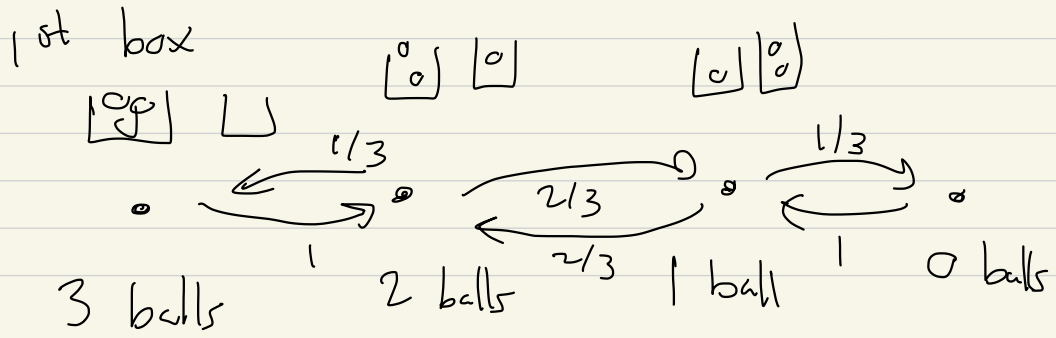 1st box
1/3
2/3
1/3
1
2/3
1
3 balls
2 balls
1 ball
0 balls